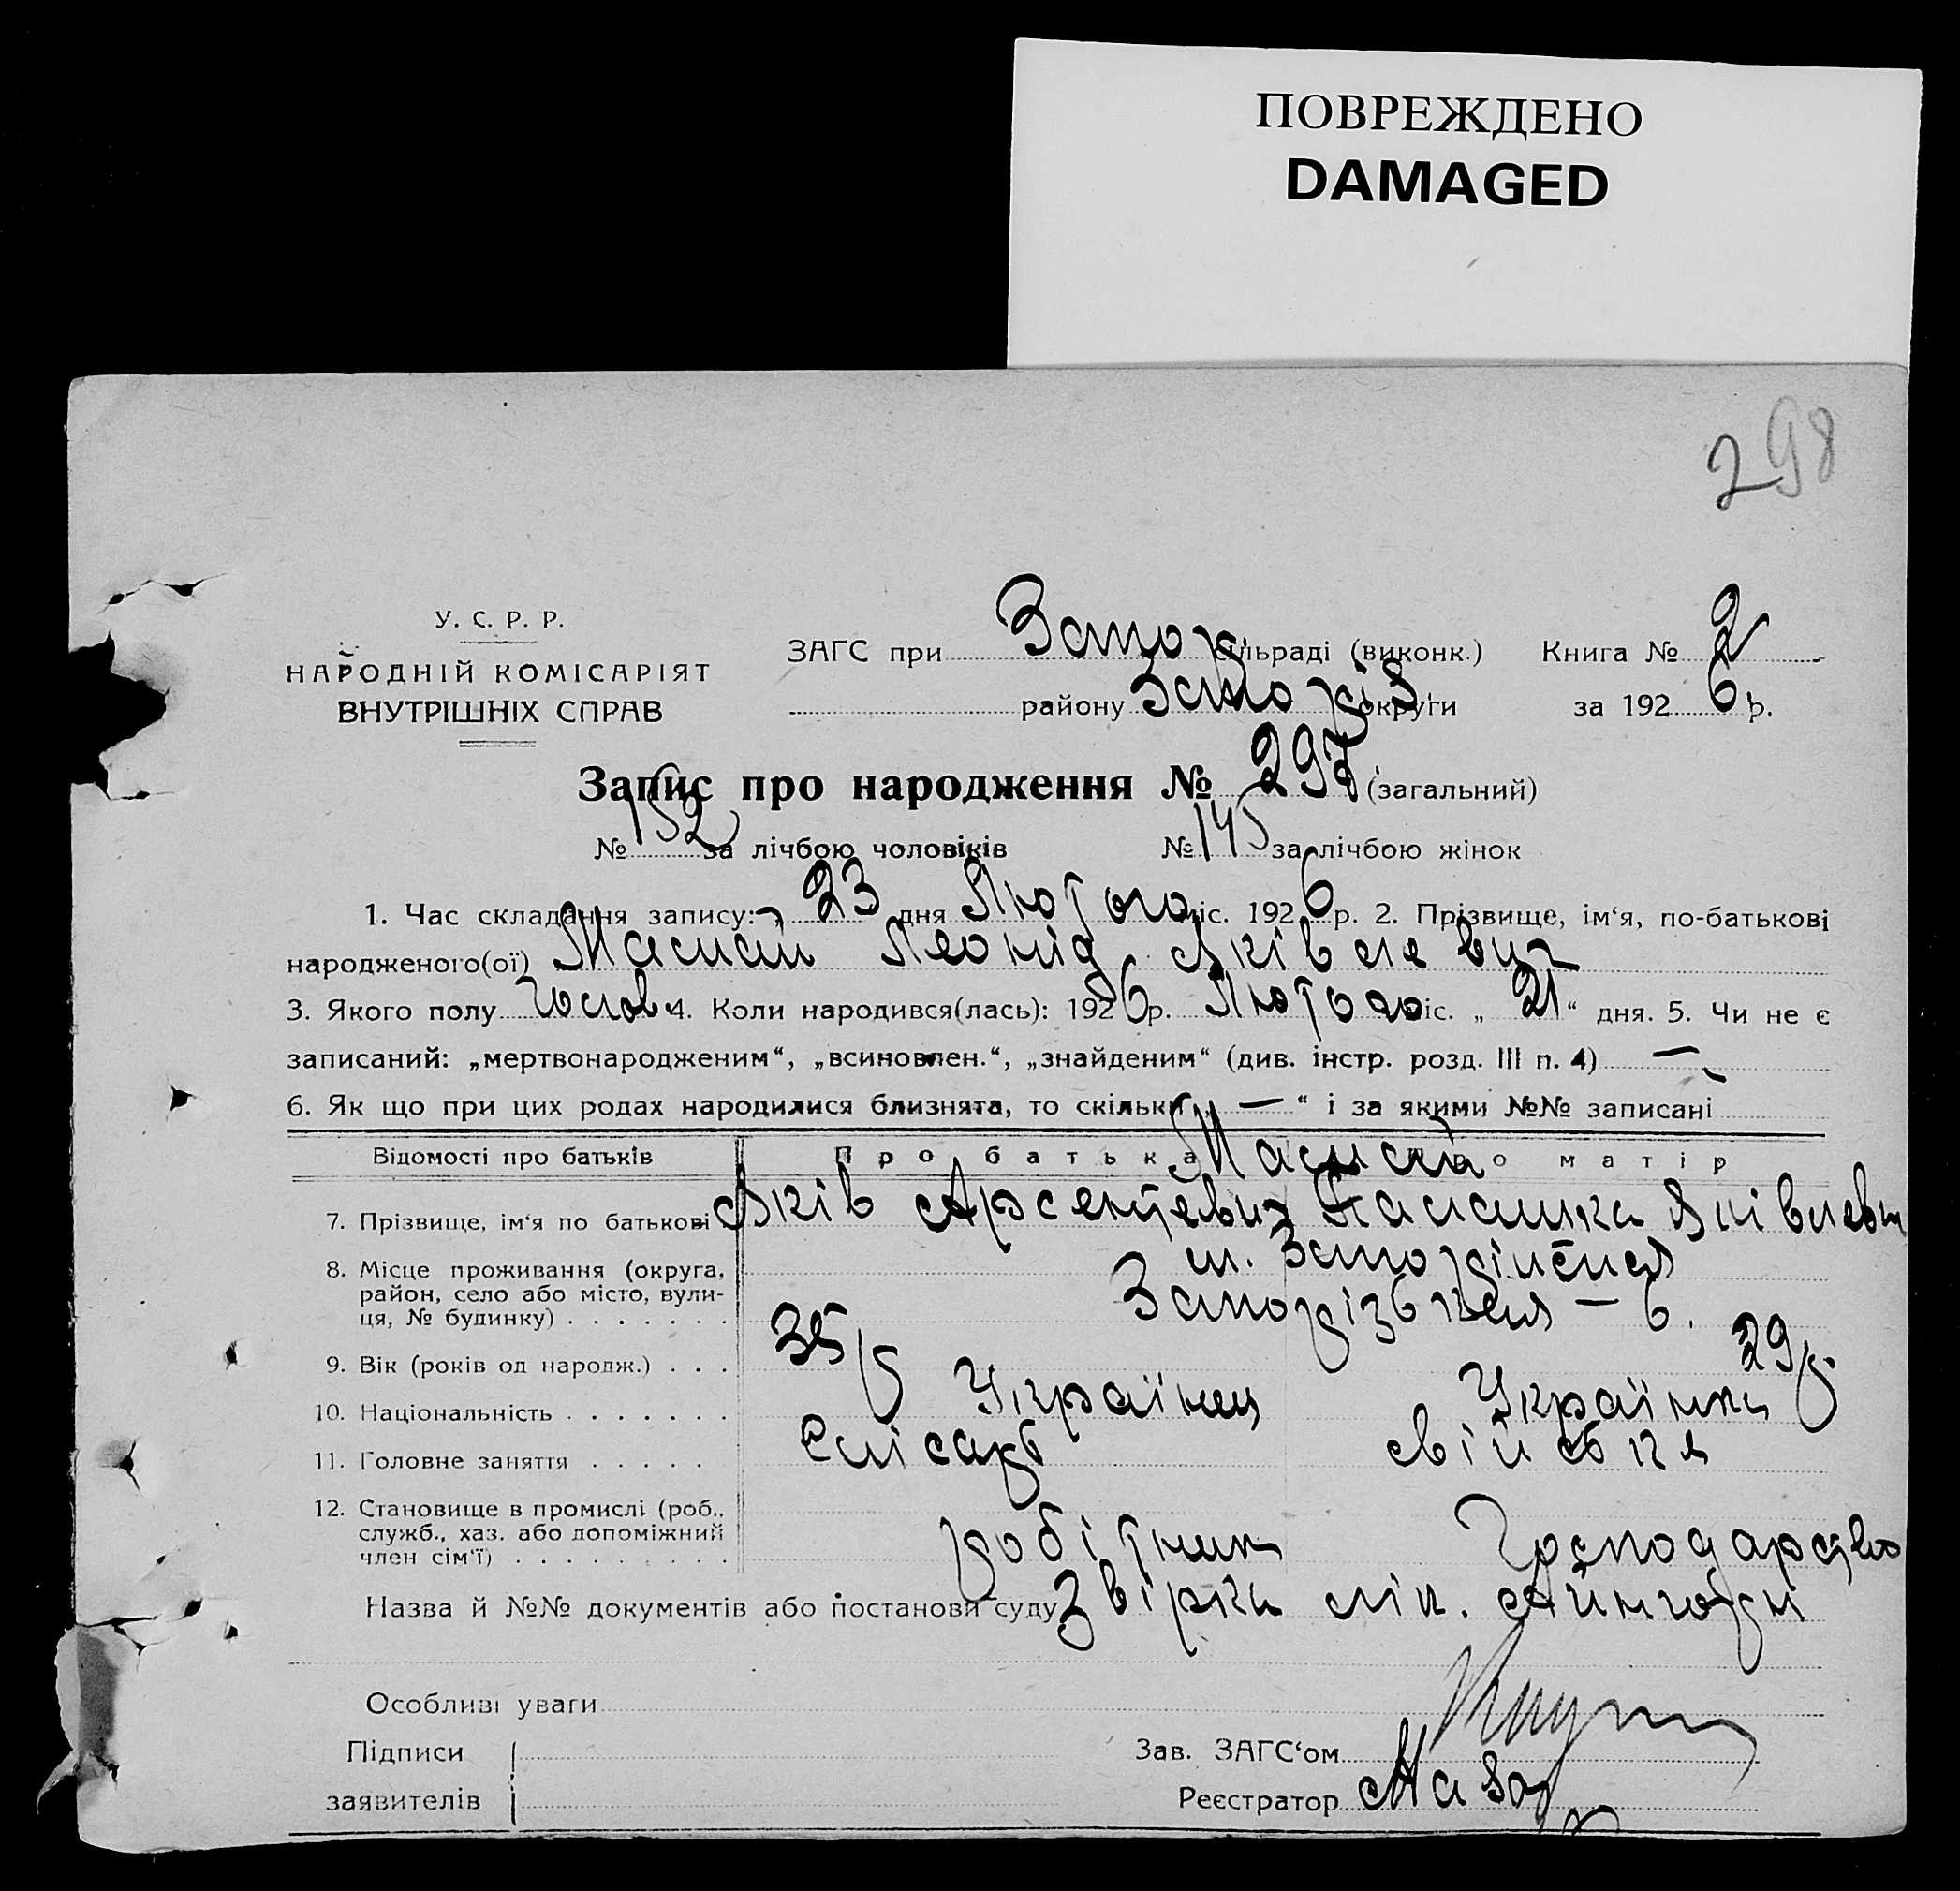 ПОВРЕЖДЕНО
DAMAGED
298
У. С. Р. Р.
НАРОДНІЙ КОМІСАРІЯТ
ВНУТРІШНІХ СПРАВ
ЗАГС при Запор сільраді (виконк.) Книга № 2
району Запоріз. округи за 1926 р.
Запис про народження № 297 (загальний)
№ 152 за лічбою чоловіків № 145 за лічбою жінок
1. Час складання запису: 23 дня Лютого міс. 1926 р. 2. Прізвище, ім'я, по-батькові
народженого(ої) Леонід Яківлевич
3. Якого полу чолов 4. Коли народився(лась): 1926 р. Лютого міс. „ 21 “ дня. 5. Чи не є
записаний: „мертвонародженим“, „всиновлен.“, „знайденим“ (див. інстр. розд. III п. 4) —
6. Як що при цих родах народилися близнята, то скільки „ — “ і за якими №№ записані
Відомості про батьків Про батька Про матір
7. Прізвище, ім'я по батькові Яків Арсентєвич Палашка Яківлевн
8. Місце проживання (округа, район, село або місто, вулиця, № будинку) . . . . . . . Запорізька — 6.
9. Вік (років од народж.) . . . 35 р 29 р.
10. Національність . . . . . . . Українец Українка
11. Головне заняття . . . . . Слісарь свійська
12. Становище в промислі (роб., служб., хаз. або допоміжний член сім'ї) . . . . . . . . . робітник Господарство
Назва й №№ документів або постанови суду Звірка лік.
Особливі уваги
Підписи
заявителів
Зав. ЗАГС'ом
Реєстратор